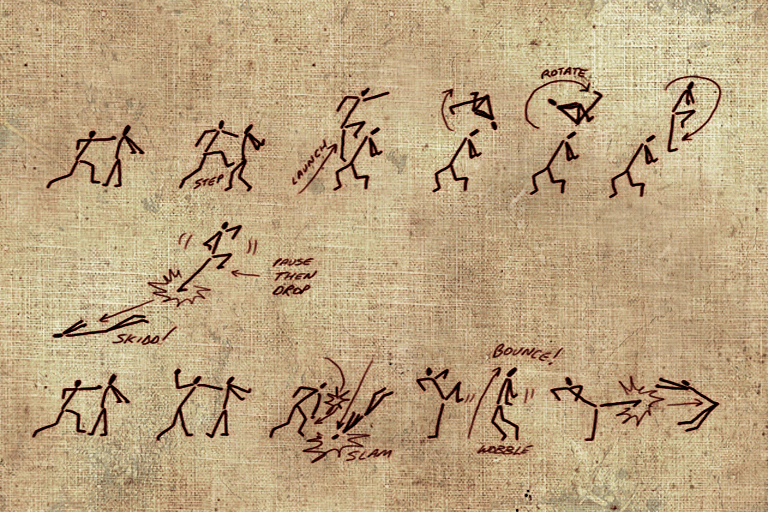 ROTATE
LAUNCH
STEP
PAUSE
THEN
DROP
SKIDD!
BOUNCE!
SLAM
WOBBLE